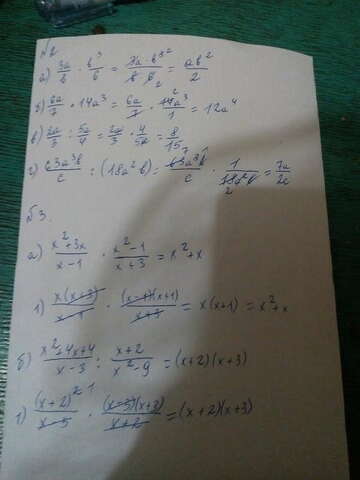 №2
а) 3a/b · b³/6 = 3a·b³²/b·6₂ = ab²/2
б) 6a/7 · 14a³ = 6a/7 · 14²a³/1 = 12a⁴
в) 2a/3 : 5a/4 = 2a/3 · 4/5a = 8/15
г) 63a³b/c : (18a²b) = 63a³b/c · 1/18a²b = 7a/2c
№3.
а) x²+3x/x-1 · x²-1/x+3 = x²+x
1) x(x+3)/x-1 · (x-1)(x+1)/x+3 = x(x+1) = x²+x
б) x²+4x+4/x-3 : x+2/x²-9 = (x+2)(x+3)
1) (x+2)²¹/x-3 · (x-3)(x+3)/x+2 = (x+2)(x+3)